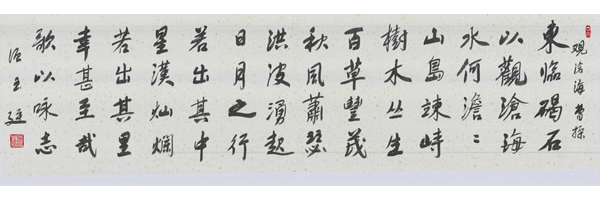 观沧海 曹操
東臨碣石
以觀滄海
水何澹々
山島竦峙
樹木丛生
百草豐茂
秋风蕭瑟
洪波湧起
日月之行
若出其中
星漢灿爛
若出其里
幸甚至哉
歌以咏志